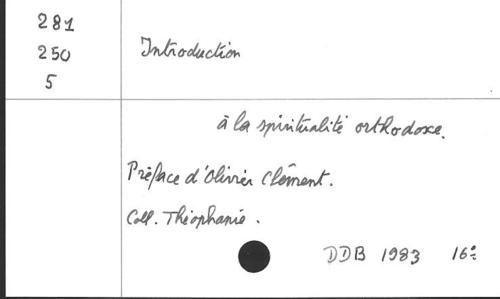 281
250
5
Introduction
à la spiritualité orthodoxe.
Préface d'Olivier Clément.
Coll. Théophanie.
DDB 1983 16°